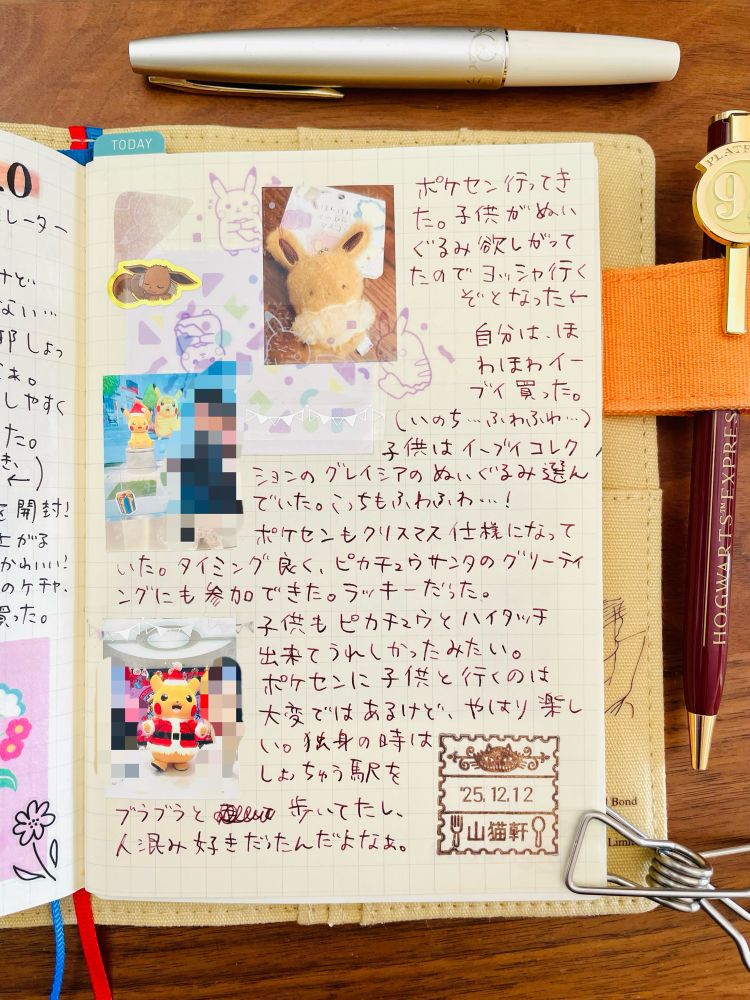 TODAY
ポケセン行ってき
た。子供がぬい
ぐるみ欲しがって
たのでヨッシャ行く
ぞとなった←
自分は、ほ
わほわイー
ブイ買った。
(いのち…ふわふわ…)
子供はイーブイコレク
ションのグレイシアのぬいぐるみ選ん
でいた。こっちもふわふわ…!
ポケセンもクリスマス仕様になって
いた。タイミング良く、ピカチュウサンタのグリーティ
ングにも参加できた。ラッキーだった。
子供もピカチュウとハイタッチ
出来てうれしかったみたい。
ポケセンに子供と行くのは
大変ではあるけど、やはり楽し
い。独身の時は
しょっちゅう駅を
ブラブラと歩いてたし、
人混み好きだったんだよなぁ。
'25.12.12
山猫軒
レーター
けど
ない…
しょっ
しやすく
った。
←)
を開封!
かわいい!
のケチャ、
買った。
9¾
HOGWARTS™ EXPRESS
Bond